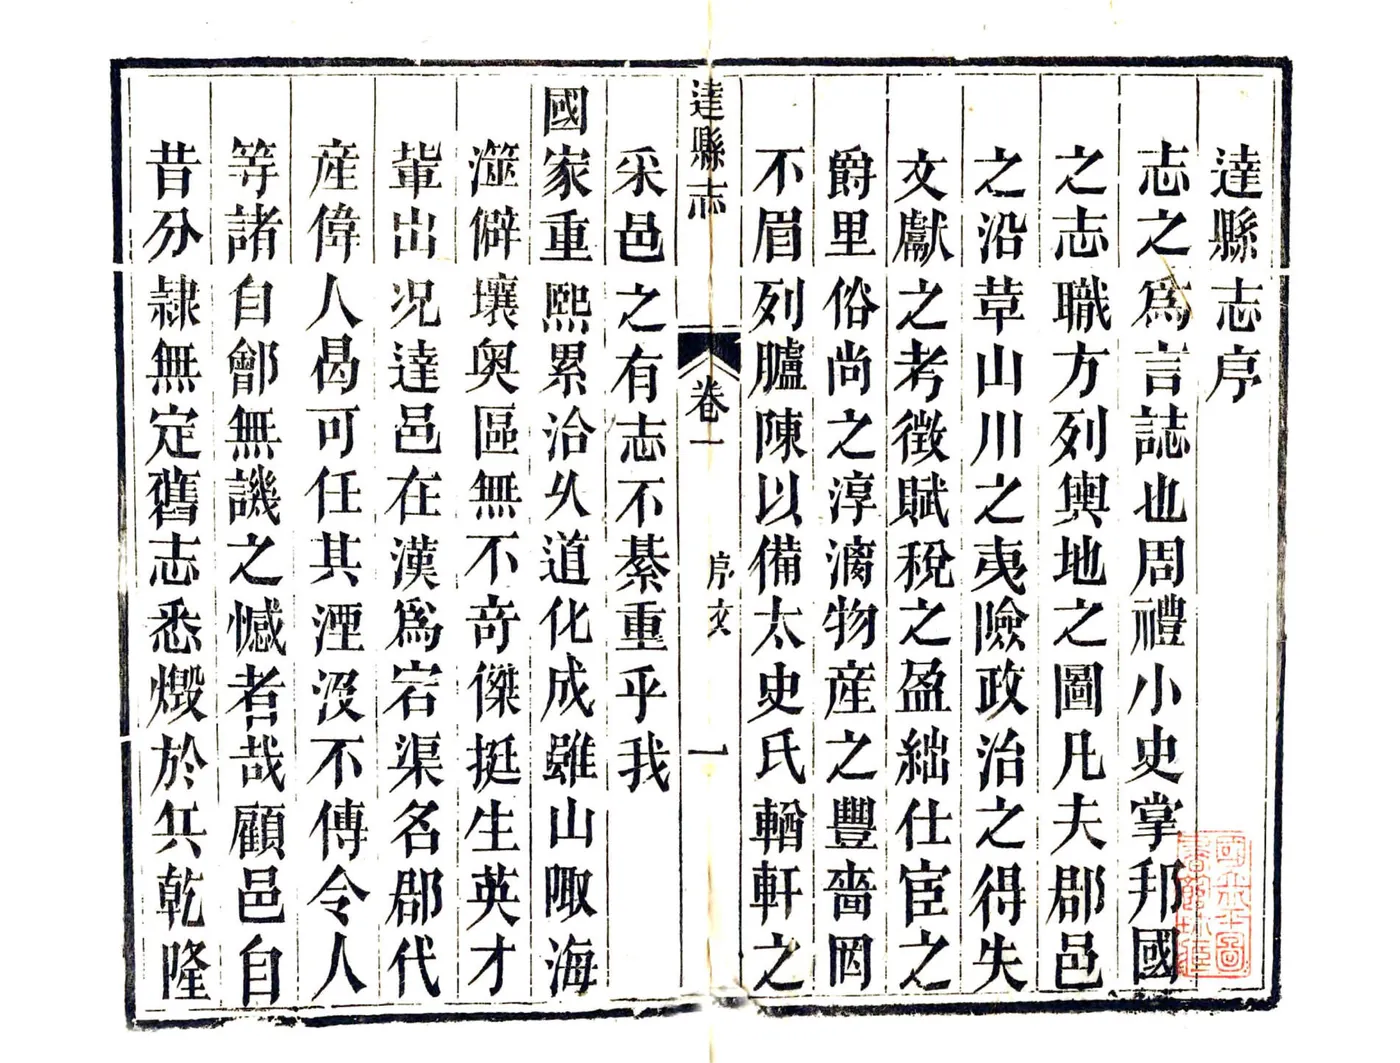 達縣志序
志之爲言誌也周禮小史掌邦國
之志職方列輿地之圖凡夫郡邑
之沿革山川之夷險政治之得失
文獻之考徵賦稅之盈絀仕宦之
爵里俗尚之淳漓物産之豐嗇罔
不眉列臚陳以備太史氏輶軒之
達縣志
卷一
序文
一
采邑之有志不綦重乎我
國家重熙累洽久道化成雖山陬海
澨僻壤奥區無不奇傑挺生英才
輩出况達邑在漢爲宕渠名郡代
産偉人曷可任其湮没不傳令人
等諸自鄶無譏之憾者哉顧邑自
昔分隷無定舊志悉燬於兵乾隆
國立北平圖
書館珍藏